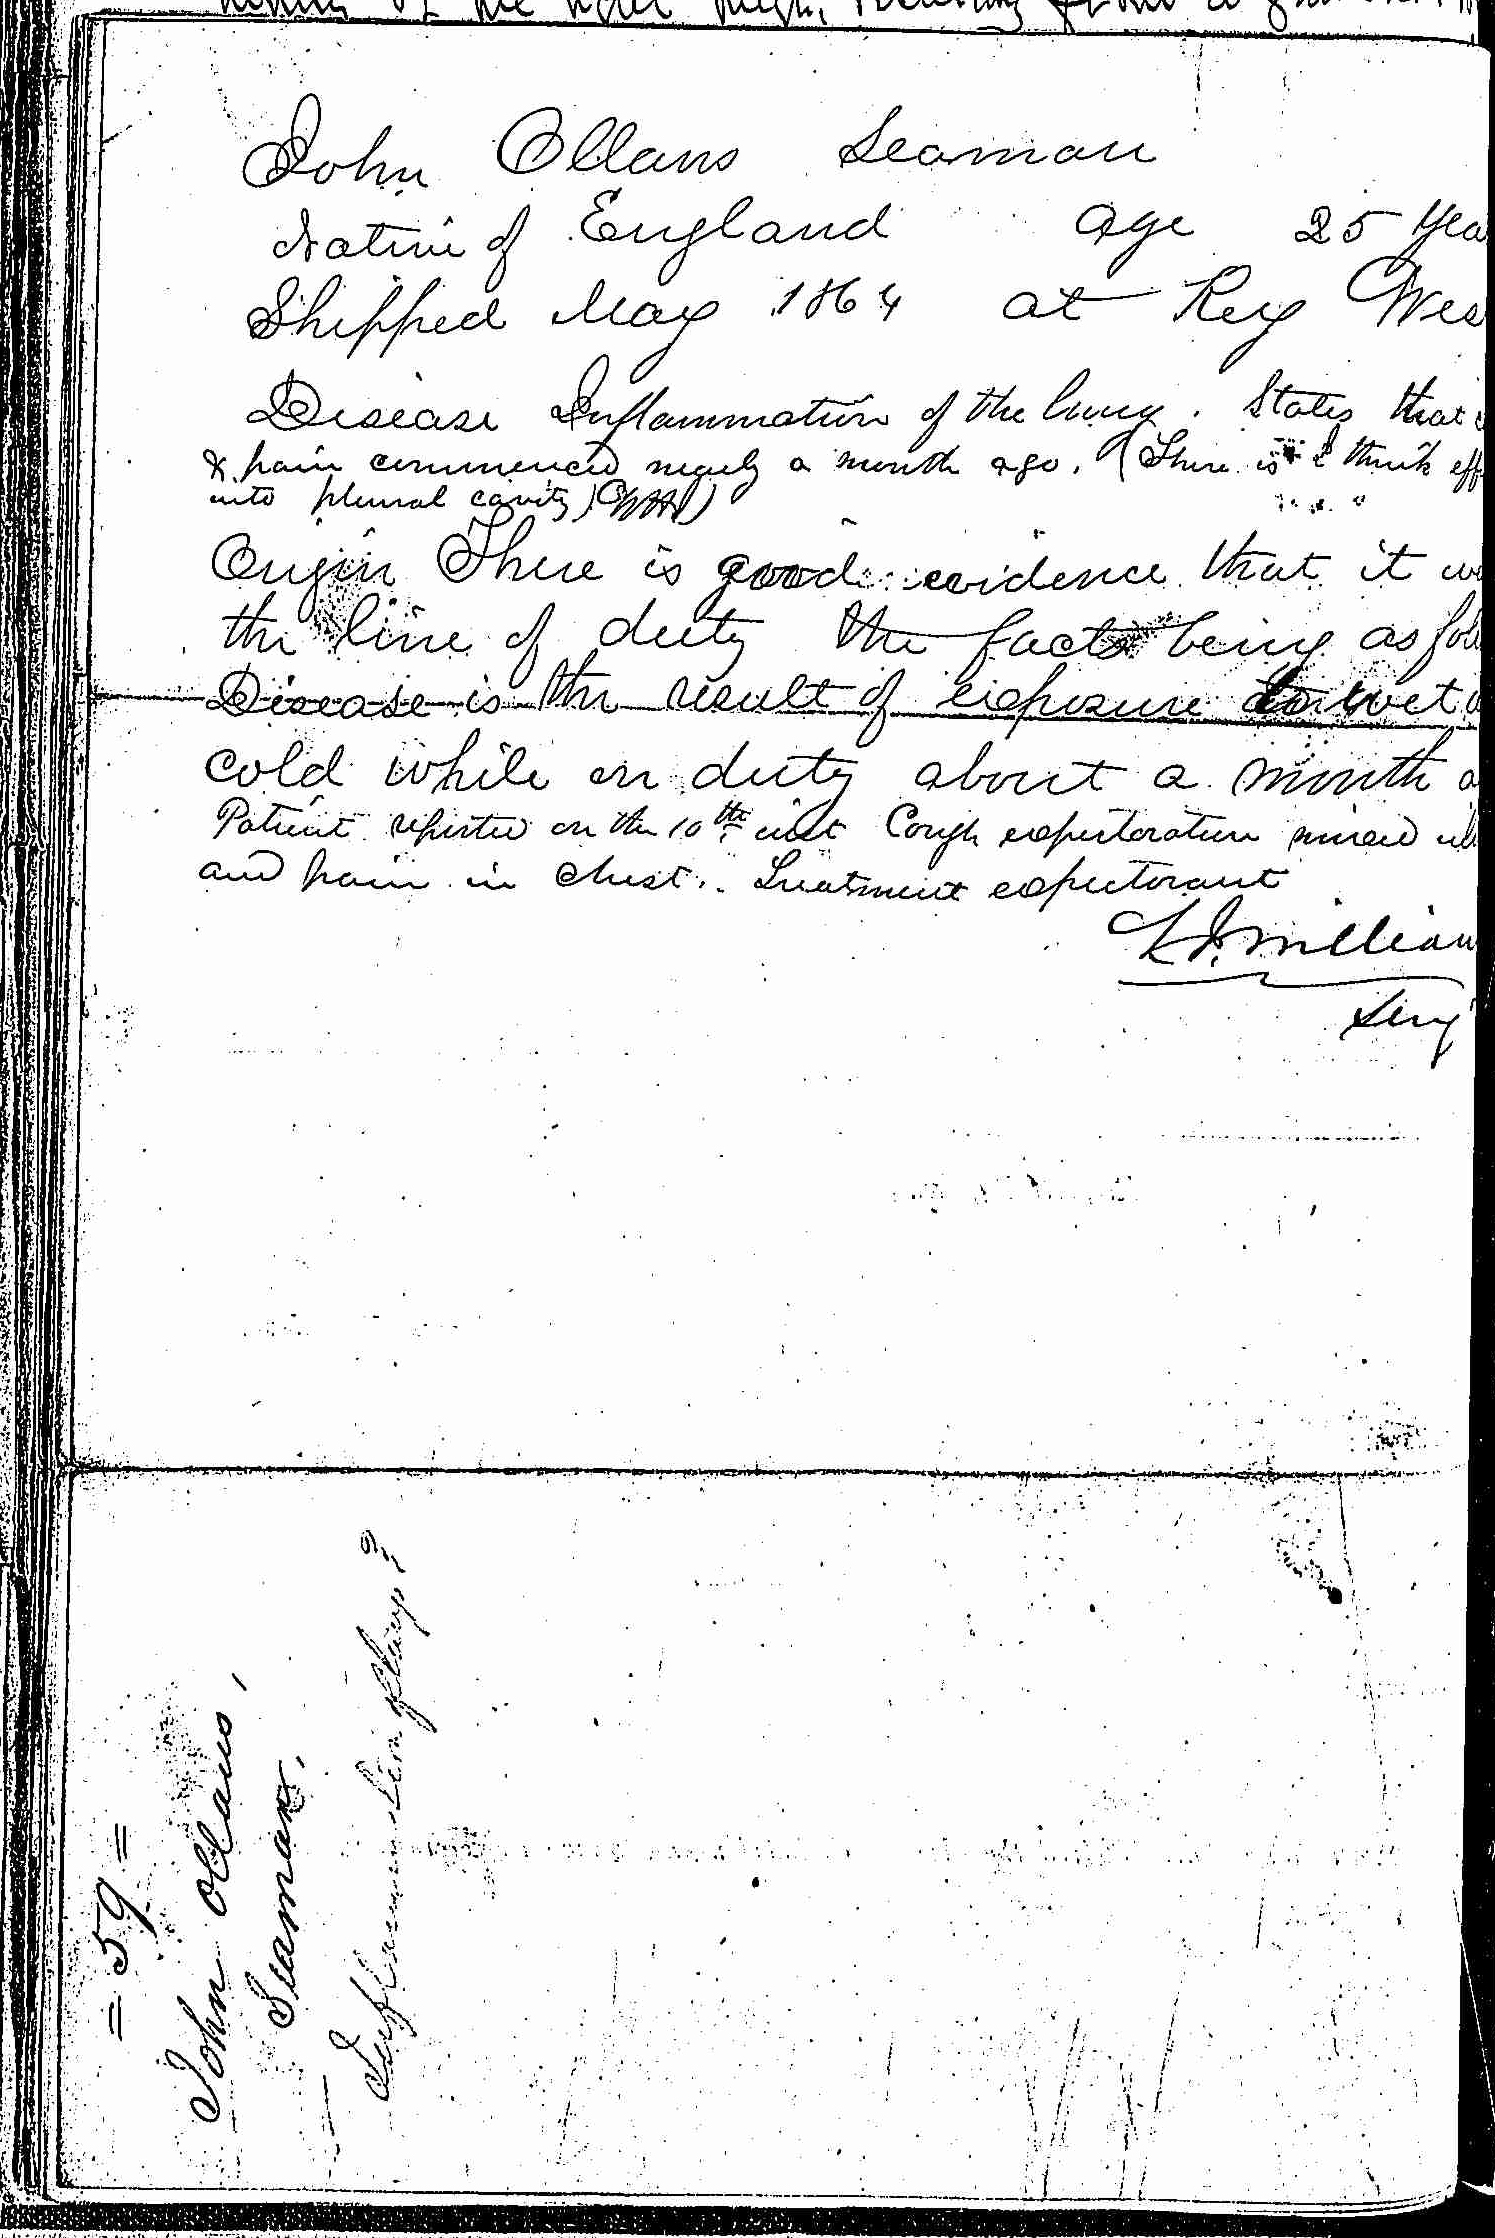 John Ollans Seaman
Native of England age 25 Yea
Shipped May 1864 at Key Wes
Disease Inflammation of the lung. States that
& pain commenced nearly a month ago. (There is I think eff
into plural cavity)
Origin There is good evidence that it w
the line of duty the facts being as foll
Disease is the result of exposure to wet
cold while on duty about a month a
Patient reported on the 10th inst Cough expectoration mixed
and pain in chest. Treatment expectorant
Surg
= 59 =
John Ollans,
Seaman.
Inflammation of lungs